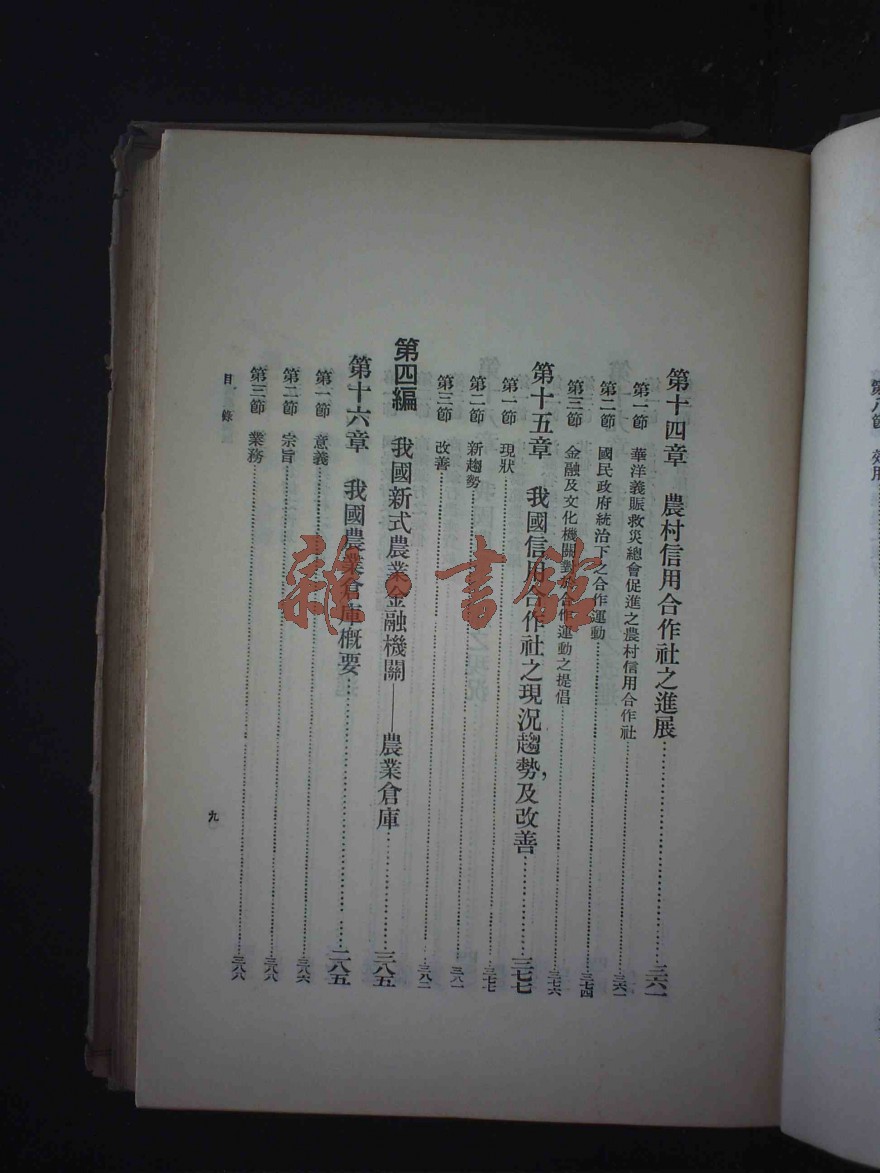 第十四章　農村信用合作社之進展……三六一
第一節　華洋義賑救災總會促進之農村信用合作社……三六一
第二節　國民政府統治下之合作運動……三七四
第三節　金融及文化機關對於合作運動之提倡……三七六
第十五章　我國信用合作社之現況趨勢，及改善……三七七
第一節　現狀……三七七
第二節　新趨勢……三八一
第三節　改善……三八二
第四編　我國新式農業金融機關——農業倉庫……三八五
第十六章　我國農業倉庫概要……二八五
第一節　意義……三八六
第二節　宗旨……三八八
第三節　業務……三八八
目錄
九
雜·書館
第八節　效用